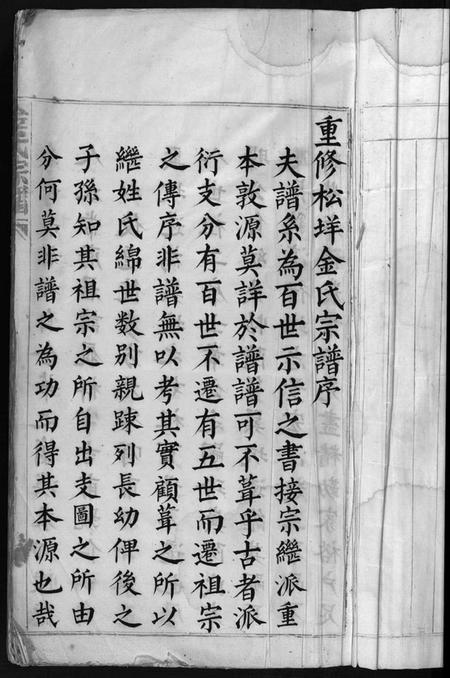 重修松垟金氏宗譜序
夫譜系為百世示信之書接宗繼派重
本敦源莫詳於譜譜可不葺乎古者派
衍支分有百世不遷有五世而遷祖宗
之傳序非譜無以考其實顧葺之所以
繼姓氏綿世数別親踈列長幼俾後之
子孫知其祖宗之所自出支圖之所由
分何莫非譜之為功而得其本源也哉